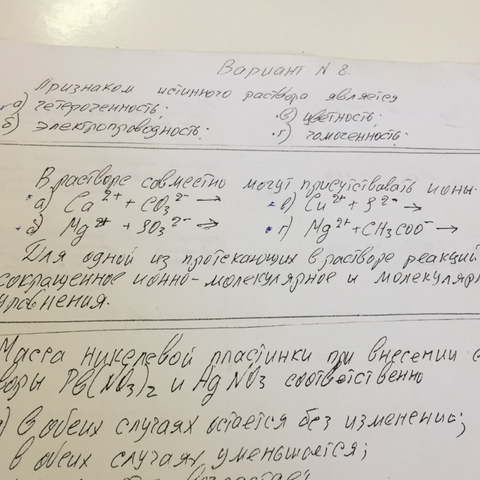 Вариант N 8.
Признаком истинного раствора является
а) гетерогенность; в) цветность;
б) электропроводность; г) гомогенность.
В растворе совместно могут присутствовать ионы:
а) Ca²⁺ + CO₃²⁻ → в) Cu²⁺ + S²⁻ →
б) Mg²⁺ + SO₃²⁻ → г) Mg²⁺ + CH₃COO⁻ →
Для одной из протекающих в растворе реакций
сокращенное ионно-молекулярное и молекулярн
уравнения.
Масса никелевой пластинки при внесении в
воры Pb(NO₃)₂ и AgNO₃ соответственно
) в обеих случаях остается без изменения;
в обеих случаях уменьшается;